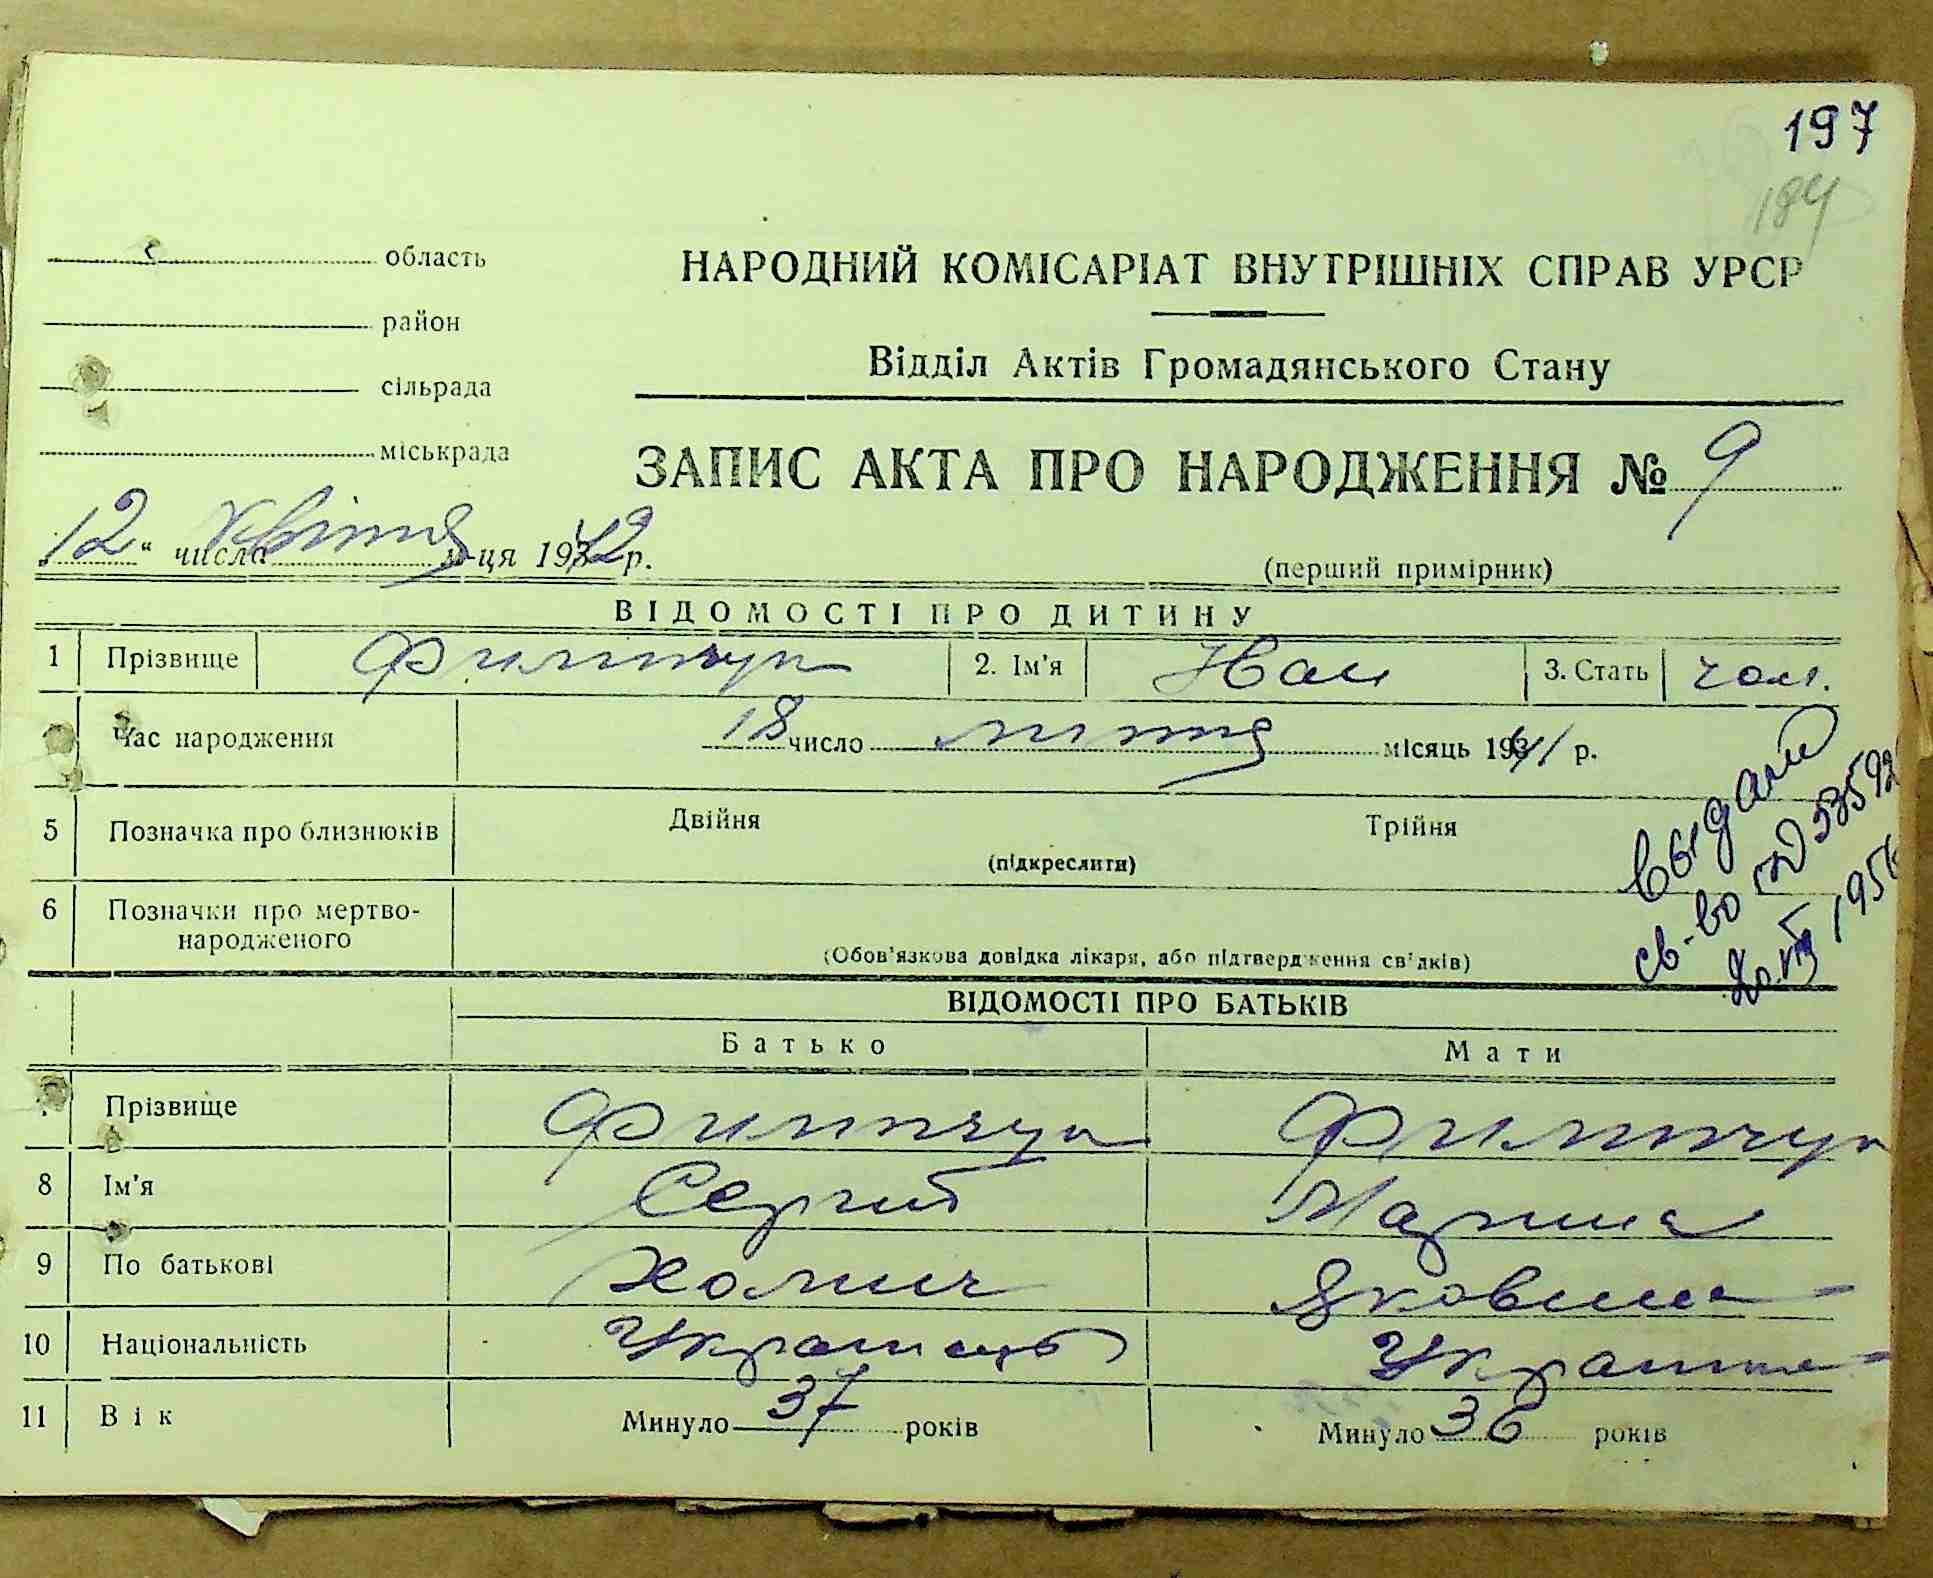 197
184
область
НАРОДНИЙ КОМІСАРІАТ ВНУТРІШНІХ СПРАВ УРСР
район
Відділ Актів Громадянського Стану
сільрада
міськрада
ЗАПИС АКТА ПРО НАРОДЖЕННЯ № 9
12 " числа квітня м-ця 1942 р.
(перший примірник)
ВІДОМОСТІ ПРО ДИТИНУ
1 Прізвище Филипчук 2. Ім'я 3. Стать чол.
Час народження 18 число лютня місяць 1941 р.
5 Позначка про близнюків Двійня Трійня
(підкреслити)
6 Позначки про мертво-
народженого
(Обов'язкова довідка лікаря, або підтвердження свідків)
выдано
св-во 53592
1956
ВІДОМОСТІ ПРО БАТЬКІВ
Батько Мати
Прізвище Филипчук Филипчук
8 Ім'я Сергій Марина
9 По батькові Яковлена
10 Національність Українець Українка
11 Вік Минуло 37 років Минуло 36 років